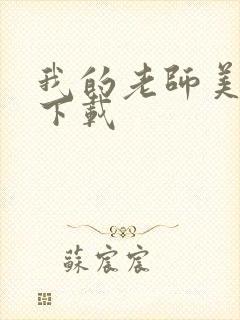 我的老師美
下載
蘇宸宸